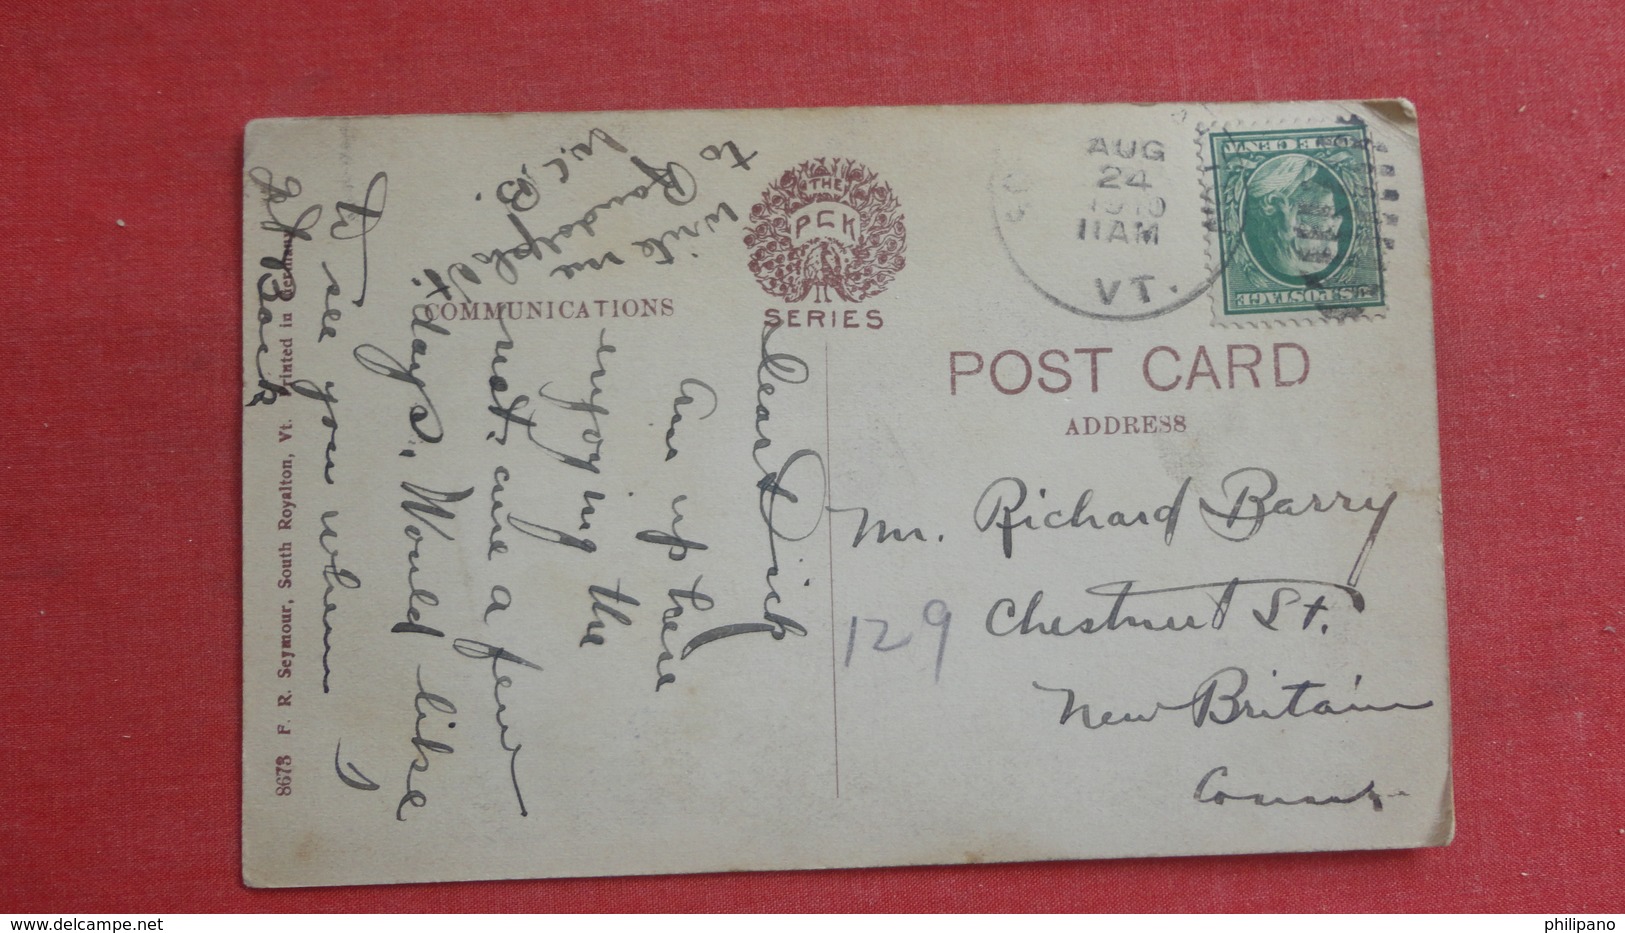 AUG
24
1910
11 AM
VT.
U.S. POSTAGE
ONE CENT
THE
PCK
SERIES
COMMUNICATIONS
POST CARD
ADDRESS
Mr. Richard Barry
Chestnut St.
New Britain
Conn.
129
Dear Dick
Am up here
enjoying the
next. a few
days. Would like
to see you when I
get Back
write me
to Randolph
W.C.B.
8673 F. R. Seymour, South Royalton, Vt. Printed in Germany
philipano